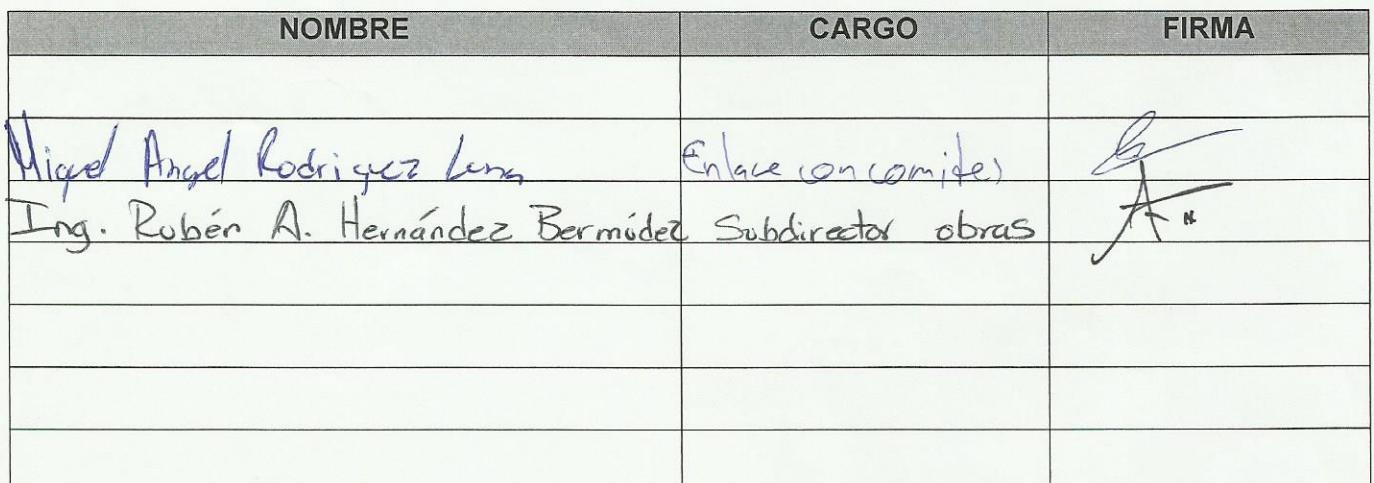 NOMBRE CARGO FIRMA
Miguel Angel Rodriguez Luna Enlace con comites
Ing. Rubén A. Hernández Bermúdez Subdirector obras